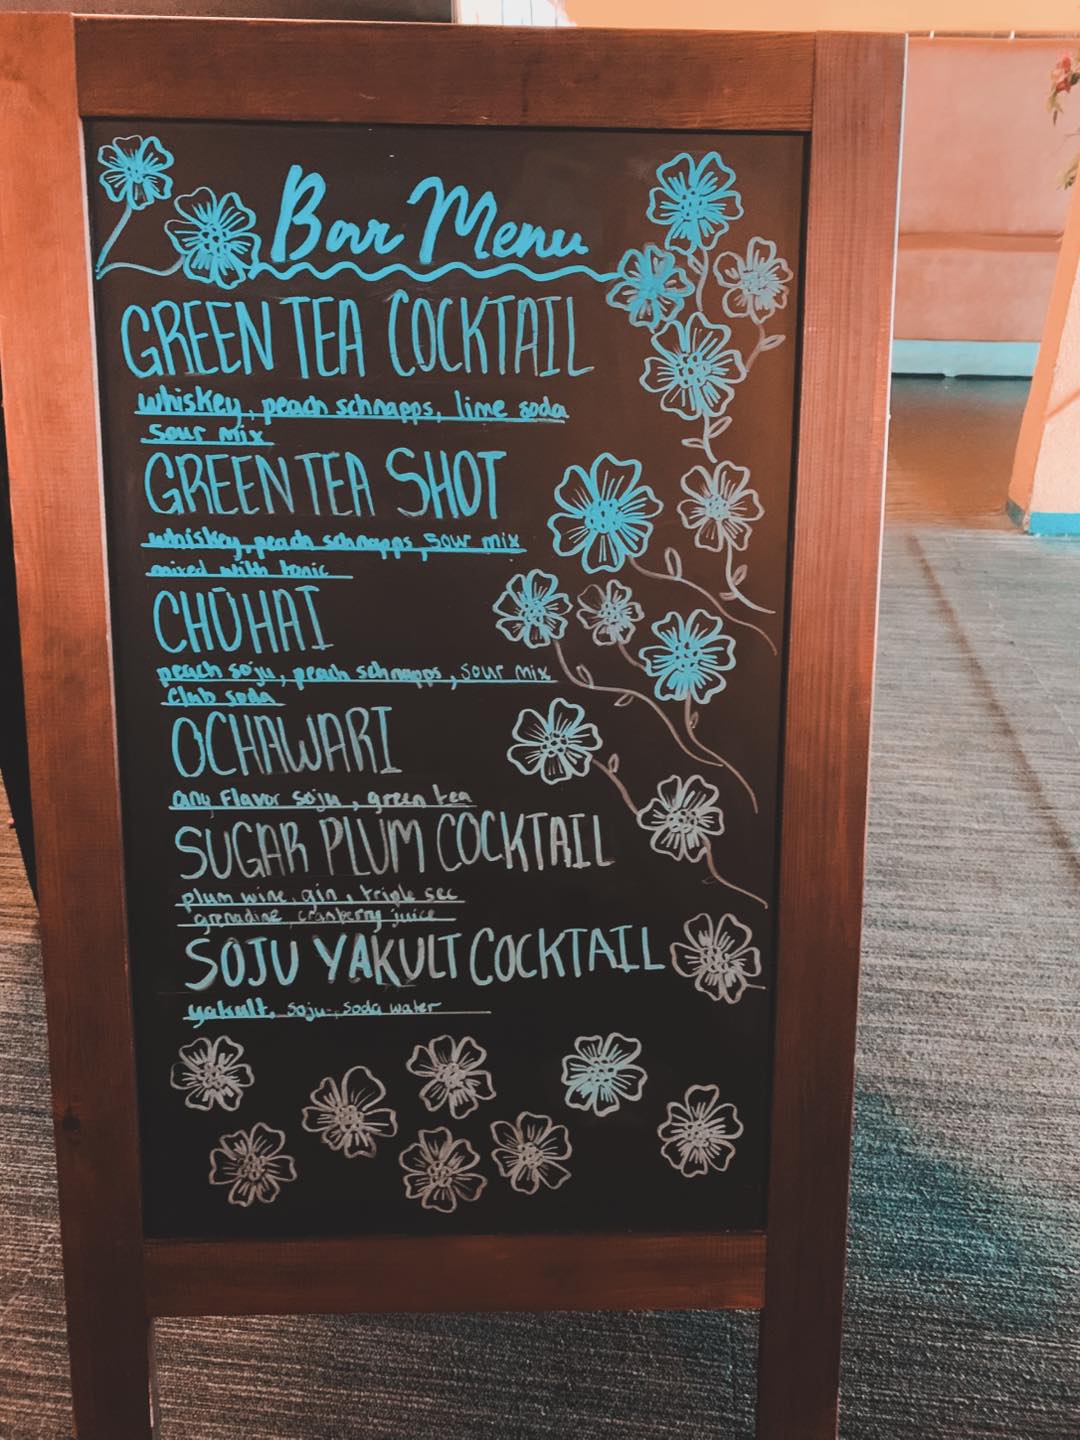 Bar Menu
GREEN TEA COCKTAIL
whiskey, peach schnapps, lime soda
sour mix
GREEN TEA SHOT
whiskey, peach schnapps, sour mix
mixed with tonic
CHŪHAI
peach soju, peach schnapps, sour mix
club soda
OCHAWARI
any Flavor soju, green tea
SUGAR PLUM COCKTAIL
plum wine, gin, triple sec
grenadine, cranberry juice
SOJU YAKULT COCKTAIL
yakult, soju, soda water